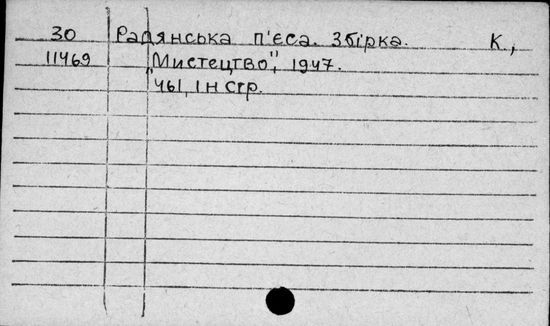 30 Радянська п'єса. Збірка. К.,
11469 „Мистецтво", 1947.
461, 1н стр.